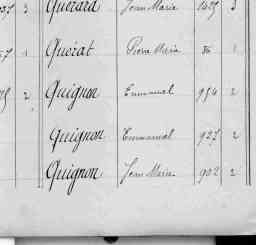 37 3 Quérard Jean Marie 1425 3
57 1 Quérat Pierre Marie 36 1
75 2 Quignon Emmanuel 954 2
Quignon Emmanuel 927 2
Quignon Jean Marie 902 2